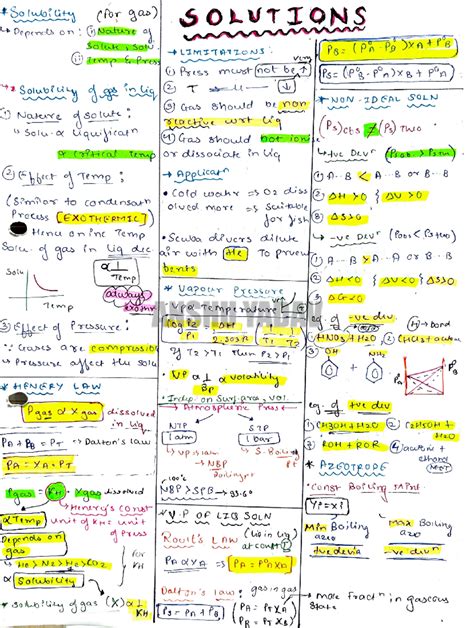 SOLUTIONS
* Solubility (for gas)
Depends on: ① Nature of
Solute, Solv.
② Temp & Press
* Solubility of gas in Liq
① Nature of solute:
Solu. α Liquification
α Critical Temp
② Effect of Temp:
(Similar to condensation
Process [EXOTHERMIC]
Hence on inc Temp
Solu. of gas in liq dec.
Solu
Temp
α 1/Temp
always exother
③ Effect of Pressure:
∵ Gases are compressible
∴ Pressure affect the Solu
* HENERY LAW
Pgas α Xgas dissolved in liq.
PA + PB = PT → Dalton's law
PA = YA × PT
Pgas = KH · Xgas dissolved
α Temp
Henery's Const
unit of KH = unit of Press
Depends on gas
He > N2 > H2 > CO2
for KH
α 1/Solubility
* Solubility of gas (X) α 1/KH
* LIMITATIONS:
① Press must not be ↑ very
② T
③ Gas should be non
reactive wrt liq
④ Gas should not ionise
or dissociate in liq
→ Applicatn
• Cold water → O2 diss
olved more → Suitable
for fish
• Scuba divers dilute
air with He to prevent
bents
* Vapour Pressure
VP α Temperature
log P2/P1 = ΔH/2.303R (1/T1 - 1/T2)
If T2 > T1 then P2 > P1
* VP α 1/BP α volatility
• Indep. on Surf. area, vol.
Atmospheric Press
NTP
STP
1 atm
1 bar
VP of liq
NBP
Boiling pt
S-Boiling
100°C
NBP > SBP → 99.6°
* V.P OF LIQ SOLN
Roult's Law (liq in liq)
at const T
PA α XA ⇒ PA = P°A XA
Dalton's law: gas in gas
PS = PA + PB
PA = PT XA
PB = PT XB
PS = (P°A - P°B) XA + P°B
PS = (P°B - P°A) XB + P°A
* NON-IDEAL SOLN
(PS) obs ≠ (PS) Theo
→ +ve Devn (Pobs > Pstho)
① A··B < A··A or B··B
② ΔH > 0 ΔV > 0
③ ΔS > 0
→ -ve Devn (Pobs < PStheo)
① A··B > A··A or B··B
② ΔH < 0 ΔV < 0 ΔS > 0
③ ΔG < 0
eg. of -ve dev
H-bond
① HNO3 + H2O
② CHCl3 + acetone
③ OH
NH2
P°A
P°B
eg. of +ve dev
① CH3OH + H2O
② C2H5OH + H2O
③ ROH + ROR
* AZEOTROPE
• Const Boiling Point
Yi = Xi
Min Boiling
azeo
+ve devia
Max Boiling
azeo
-ve devn
• more fractn in gaseous
state
ANSHUL YADAV